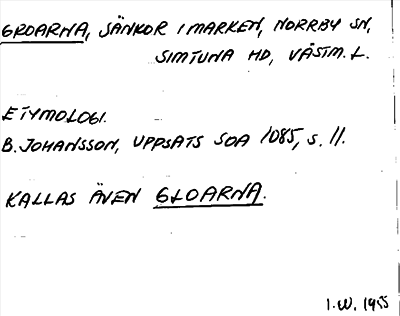 GROARNA, SÄNKOR I MARKEN, NORRBY SN,
SIMTUNA HD, VÄSTM. L.
ETYMOLOGI.
B. JOHANSSON, UPPSATS SOA 1085, S. 11.
KALLAS ÄVEN GLOARNA.
I.W. 1955